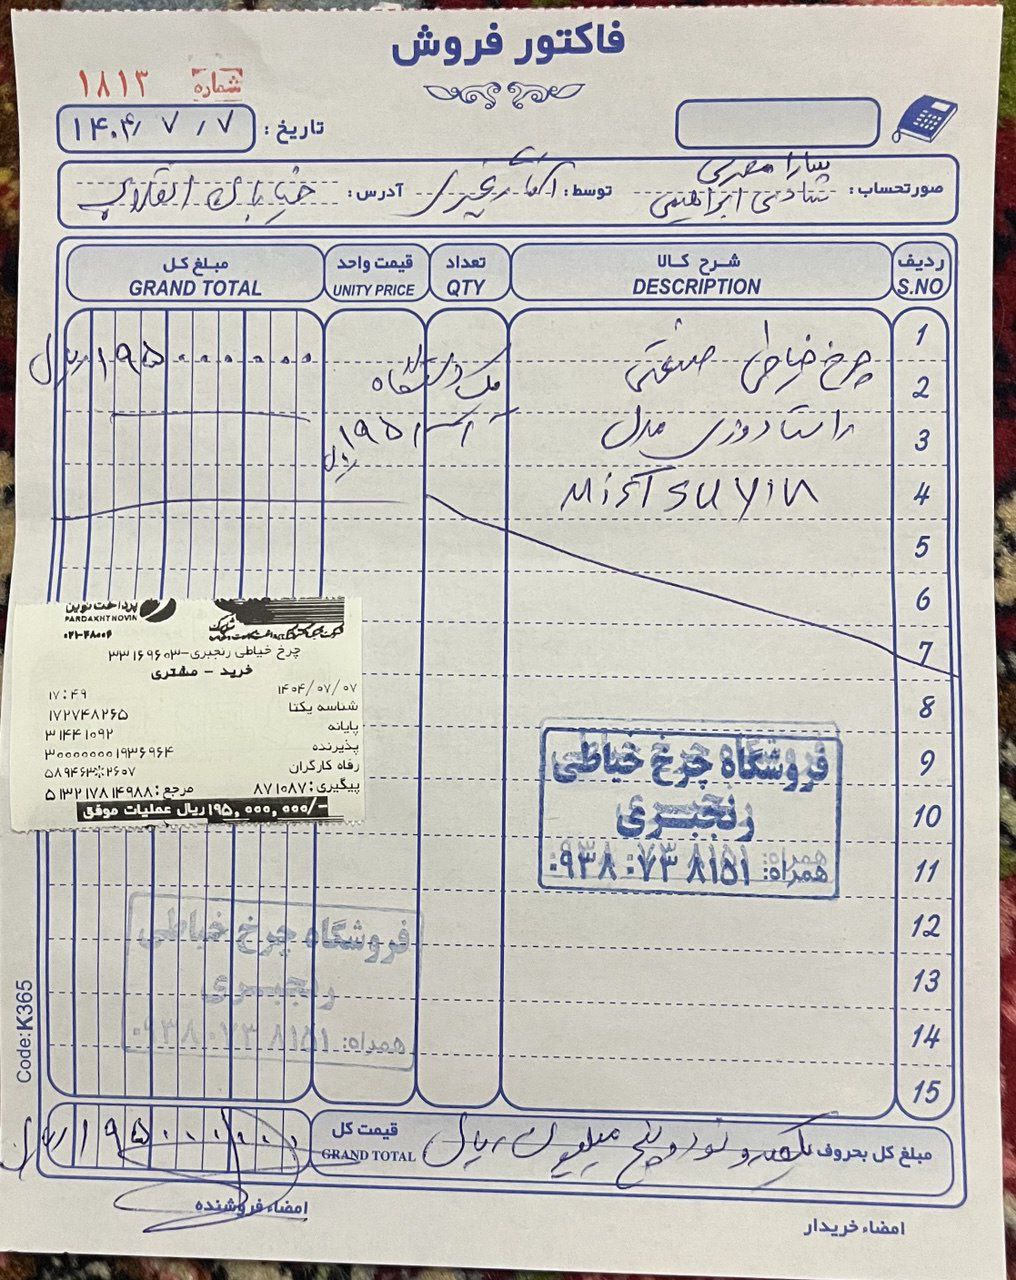 فاکتور فروش
شماره ۱۸۱۳
تاریخ : ۱۴۰۴/۷/۷
صورتحساب : شادی ابراهیمی توسط : آقای آدرس : خیابان انقلاب
ردیف شرح کالا تعداد قیمت واحد مبلغ کل
S.NO DESCRIPTION QTY UNITY PRICE GRAND TOTAL
1
2 چرخ خیاطی صنعتی یک دستگاه ۱۹۵۰۰۰۰۰۰ ریال
3 راستادوزی مدل ریال
4 MITSUYIN
5
6
7
8
9
10
11
12
13
14
15
پرداخت نوین
PARDAKHTNOVIN
۰۲۱-۴۸۰۰۶
شرکت
چرخ خیاطی رنجبری-۳۳۱۶۹۶۰۳
خرید - مشتری
۱۴۰۴/۰۷/۰۷ ۱۷:۴۹
شناسه یکتا ۱۷۲۷۴۸۲۶۵
پایانه ۳۱۴۴۱۰۹۲
پذیرنده ۳۰۰۰۰۰۰۰۱۹۳۶۹۶۴
رفاه کارگران ۵۸۹۴۶۳*۲۶۰۷
پیگیری: ۸۷۱۰۸۷ مرجع: ۵۱۳۲۱۷۸۱۴۹۸۸
۱۹۵,۰۰۰,۰۰۰/- ریال عملیات موفق
فروشگاه چرخ خیاطی
رنجبری
همراه: ۰۹۳۸ ۰۷۳ ۸۱۵۱
فروشگاه چرخ خیاطی
رنجبری
همراه: ۰۹۳۸ ۰۷۳ ۸۱۵۱
Code:K365
مبلغ کل بحروف یکصد و نود و پنج میلیون ریال قیمت کل ۱۹۵۰۰۰۰۰۰ ریال
GRAND TOTAL
امضاء خریدار امضاء فروشنده